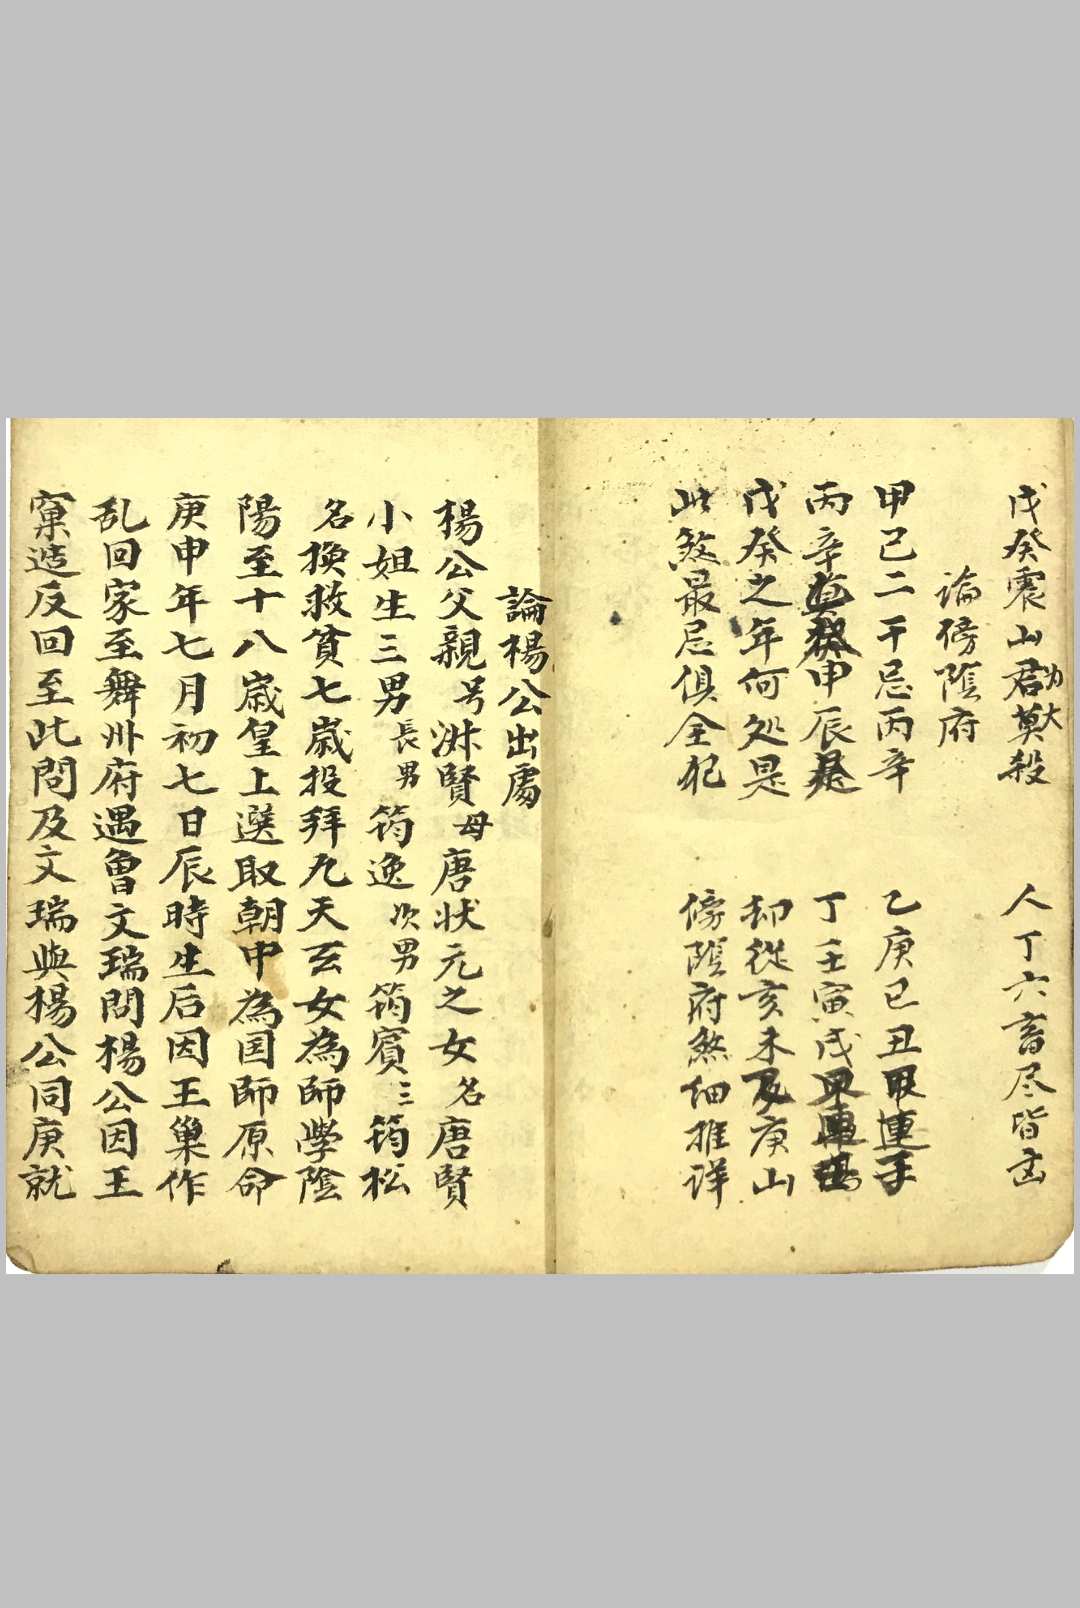 戊癸震山君為大莫殺 人丁六畜尽皆凶
論傍陰府
甲己二干忌丙辛 乙庚巳丑甲連手
丙辛申辰是 丁壬寅戌
戊癸之年何処是 却從亥未庚山
此煞最忌俱全犯 傍陰府煞細推詳
論楊公出處
楊公父親号淋賢母唐状元之女名唐賢
小姐生三男長男筠逸次男筠賓三筠松
名換救貧七歲投拜九天玄女為師學陰
陽至十八歲皇上選取朝中為国師原命
庚申年七月初七日辰時生后因王巢作
乱回家至舞州府遇曾文瑞問楊公因王
窠造反回至此問及文瑞與楊公同庚就